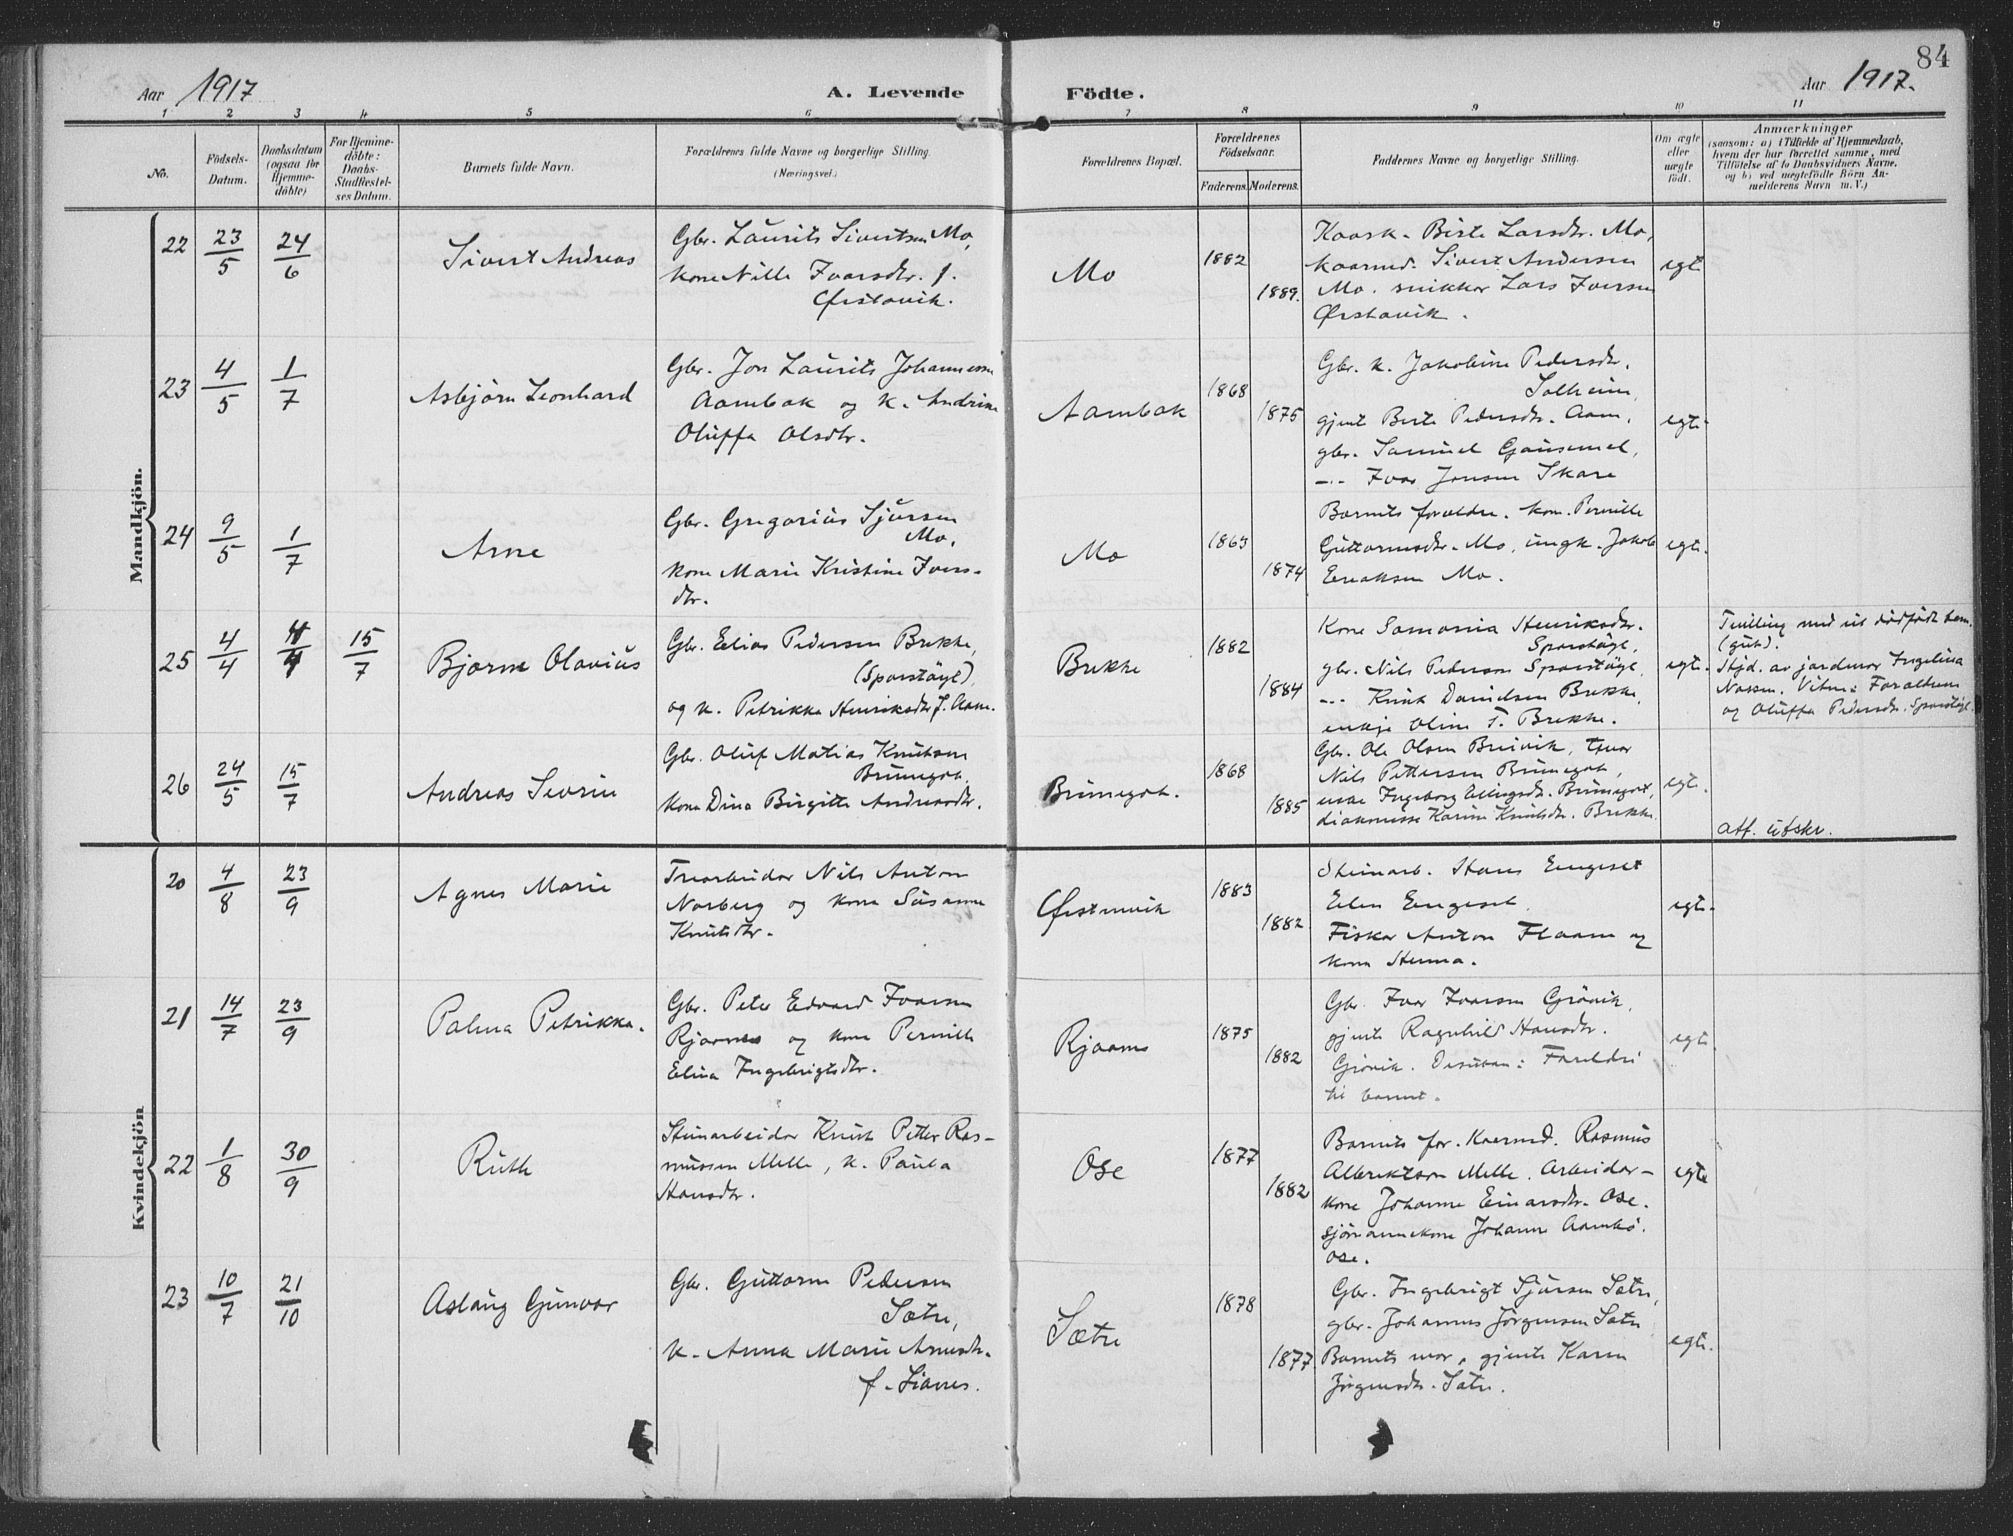 84
Aar 1917
A. Levende Födte.
Aar 1917.
1 2 3 4 5 6 7 8 9 10 11
No.
Födsels-
Datum.
Daabsdatum
(ogsaa for
Hjemme-
döbte)
For Hjemme-
döbte:
Daabs-
Stadfæstel-
ses Datum.
Barnets fulde Navn.
Forældrenes fulde Navne og borgerlige Stilling.
(Næringsvei.)
Forældrenes Bopæl.
Forældrenes
Födselsaar.
Faderens.
Moderens.
Faddernes Navne og borgerlige Stilling.
Om ægte
eller
uægte
födt.
Anmærkninger
(saasom: a) i Tilfælde af Hjemmedaab,
hvem der har forrettet samme, med
Tilföielse af to Daabsvidners Navne,
og b) ved uægtefödte Börn An-
melderens Navn m. V.)
Mandkjön.
22
23/5
24/6
Sivert Andreas
Gbr. Laurits Sivertsen Mo,
kone Nille Ivarsdtr. f.
Ørstavik.
Mo
1882
1889.
Kaark. Birte Larsdtr. Mo,
kaarmd. Sivert Andersen
Mo. snikkar Lars Iversen
Ørstavik.
egt.
23
4/5
1/7
Asbjørn Leonhard
Gbr. Jon Laurits Johannessen
Aambak og k. Andrine
Oluffa Olsdtr.
Aambak
1868
1875
Gbr. k. Jakobine Pedersdtr.
Solheim,
gjent Birte Pedersdtr. Aam,
gbr. Samuel Gausemel,
-"- Ivar Jonsen Skare
egt.
24
9/5
1/7
Arne
Gbr. Gregorius Sjursen
Mo,
kone Marie Kristine Ivers-
dtr.
Mo
1863
1874
Barnets foreldre. kone Pernille
Guttormsdtr. Mo, ungk. Jakob
Eriksen Mo.
egt.
25
4/4
4/4
15/7
Bjarne Olavius
Gbr. Elias Pedersen Brekke,
(Sporstøyl),
og k. Petrikka Henriksdtr f. Aam.
Brekke
1882
1884
Kone Samania Henriksdtr.
Sporstøyl,
gbr. Nils Pedersen Sporstøyl,
-"- Knut Danielsen Brekke,
enkje Oline T. Brekke.
egt.
Tvilling med eit dødfødt barn.
(gut).
Hjd. av jordmor Ingelina
Nossen. Vitne: Foreldrene
og Oluffa Pedersdtr. Sporstøyl.
26
24/5
15/7
Andreas Severin
Gbr. Oluf Matias Knutsen
Brunegot,
kone Dina Birgitte Andreasdtr.
Brunegot.
1868
1885
Gbr. Ole Olsen Breivik,
Nils Pettersen Brunegot,
enke Ingeborg Ellingsdtr. Brunegot,
diakonisse Karine Knutsdtr. Brekke.
egt.
att. utskr.
Kvindekjön
20
4/8
23/9
Agnes Marie
Trearbeidar Nils Anton
Norberg og kone Susanne
Knutsdtr.
Ørstenvik
1883
1882
Steinarb. Hans Engeset
Elen Engeset.
Fiskar Anton Flaam og
kona Hanna.
egt.
21
14/7
23/9
Palma Petrikka.
Gbr. Peter Edvard Ivarsen
Rjaanes og kone Pernille
Elina Ingebrigtsdtr.
Rjaanes
1875
1882
Gbr. Ivar Ivarsen Grøvik,
gjente Ragnhild Hansdtr.
Grøvik. Desutan: Foreldri
til barnet.
egt.
22
1/8
30/9
Ruth
Steinarbeidar Knut Petter Ras-
mussen Melle, k. Paula
Hansdtr.
Ose
1877
1882
Barnets far. Kaarmd. Rasmus
Albriktsen Melle. Arbeidar-
kone Johanne Einarsdtr. Ose.
sjømannskone Johanne Aambø.
Ose.
egte
23
10/7
21/10
Aslaug Gunvor
Gbr. Guttorm Pedersen
Sætre,
k. Anna Marie Arnesdtr.
Sætre
1878
1877.
Gbr. Ingebrigt Sjursen Sætre,
gbr. Johannes Jørgensen Sætre
Barnets mor, gjente Karen
Jørgensdtr. Sætre.
egt.